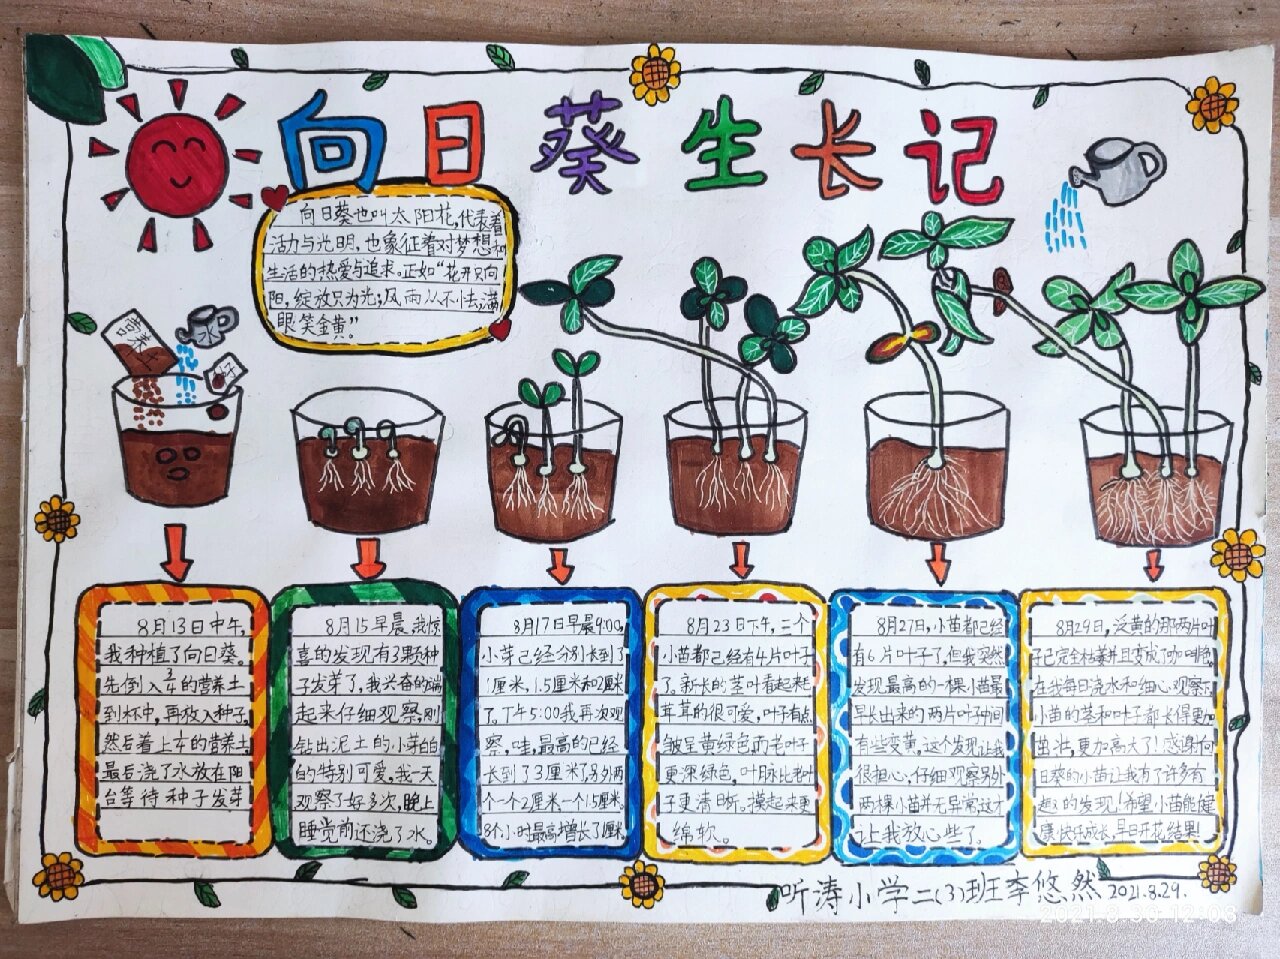 向日葵生长记
向日葵也叫太阳花,代表着
活力与光明,也象征着对梦想和
生活的热爱与追求。正如“花开只向
阳,绽放只为光;风雨从不惧,满
眼笑金黄”。
营养土
8月13日中午,
我种植了向日葵。
先倒入3/4的营养土
到杯中,再放入种子,
然后着上1/4的营养土
最后浇了水放在阳
台等待种子发芽
8月15早晨,我惊
喜的发现有3颗种
子发芽了,我兴奋的端
起来仔细观察,刚
钻出泥土的小芽白
白的特别可爱,我一天
观察了好多次,晚上
睡觉前还浇了水。
8月17日早晨9:00,
小芽已经分别长到了
1厘米,1.5厘米和2厘米
了。下午5:00我再次观
察,哇,最高的已经
长到了3厘米了,另外两
个一个2厘米一个1.5厘米。
8个小时最高增长了1厘米
8月23日下午,三个
小苗都已经有4片叶子
了。新长的茎叶看起来毛
茸茸的很可爱,叶子有点
皱呈黄绿色,而老叶子
更深绿色,叶脉比老叶
子更清晰。摸起来更
绵软。
8月27日,小苗都已经
有6片叶子了,但我突然
发现最高的一棵小苗最
早长出来的两片叶子中间
有些变黄,这个发现让我
很担心,仔细观察另外
两棵小苗并无异常,这才
让我放心些了。
8月29日,泛黄的那两片叶
子已完全枯萎并且变成了咖啡色。
在我每日浇水和细心观察下,
小苗的茎和叶子都长得更加
茁壮,更加高大了!感谢向
日葵的小苗让我有了许多有
趣的发现!希望小苗能健
康快乐成长,早日开花结果!
听涛小学二(3)班李悠然 2021.8.29.
2021.8.30 12:08